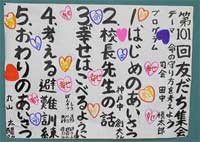 第101回友だち集会
テーマ 命の守り方を考えよう
司会 田中
プログラム
1.はじめのあいさつ
2.校長先生の話
3.幸せはこべるように
4.考える避難訓練
5.おわりのあいさつ